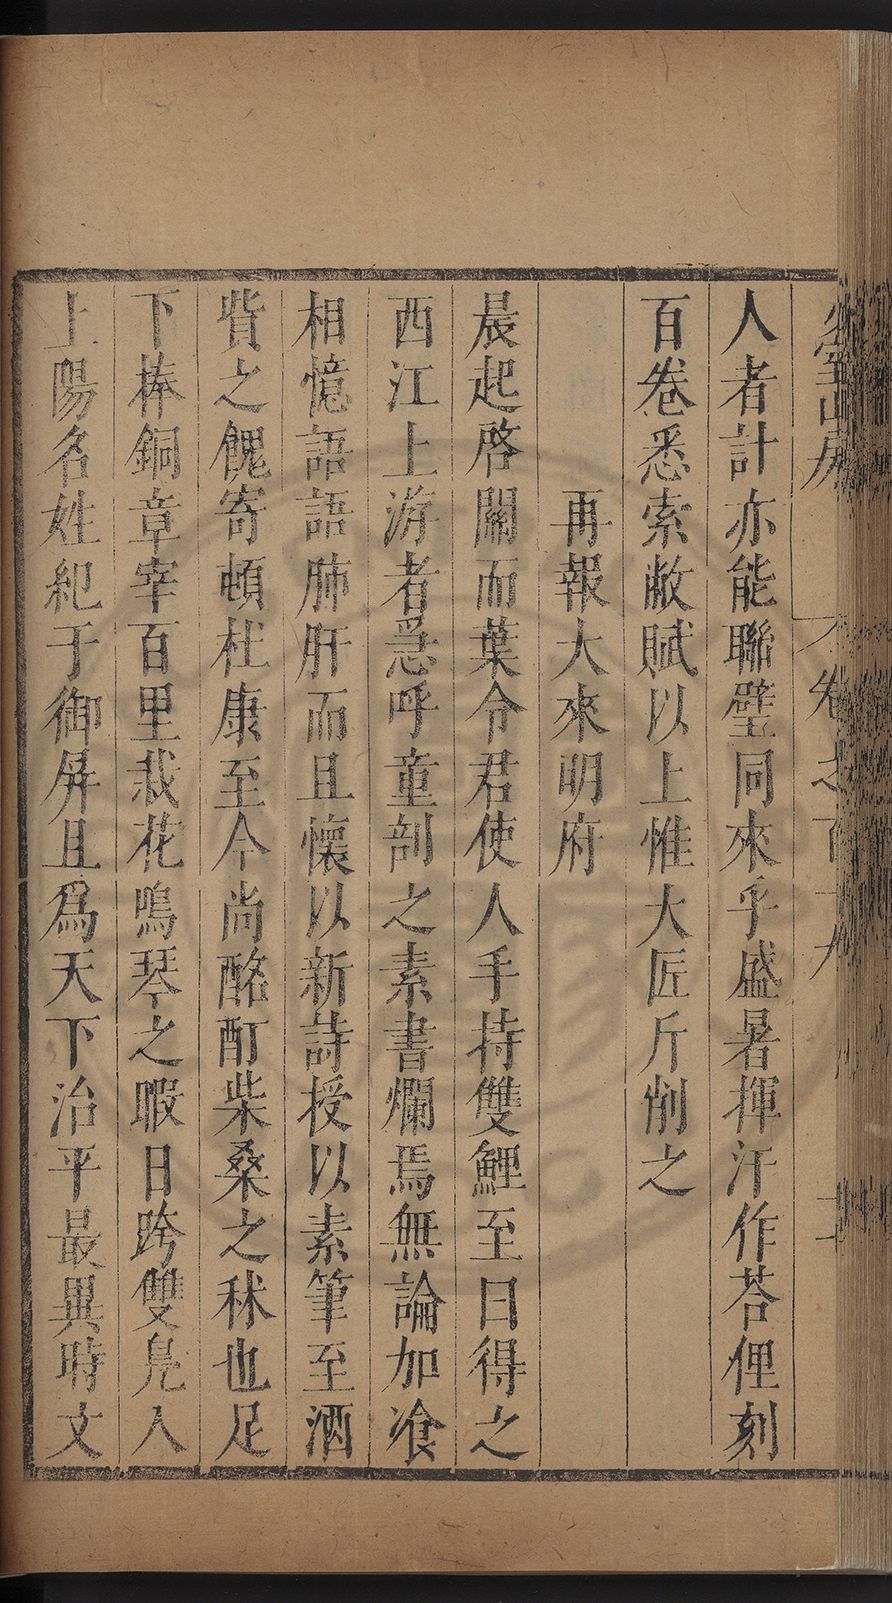 人者計亦能聯璧同來乎盛暑揮汗作荅俚刻
百卷悉索敝賦以上惟大匠斤削之
再報大來明府
晨起啓關而葉令君使人手持雙鯉至曰得之
西江上游者急呼童剖之素書爛焉無論加飡
相憶語語肺肝而且懷以新詩授以素筆至酒
貲之餽寄頓杜康至今尚酩酊柴桑之秫也足
下棒銅章宰百里栽花鳴琴之暇日跨雙鳧入
上陽名姓紀于御屏且爲天下治平最異時文